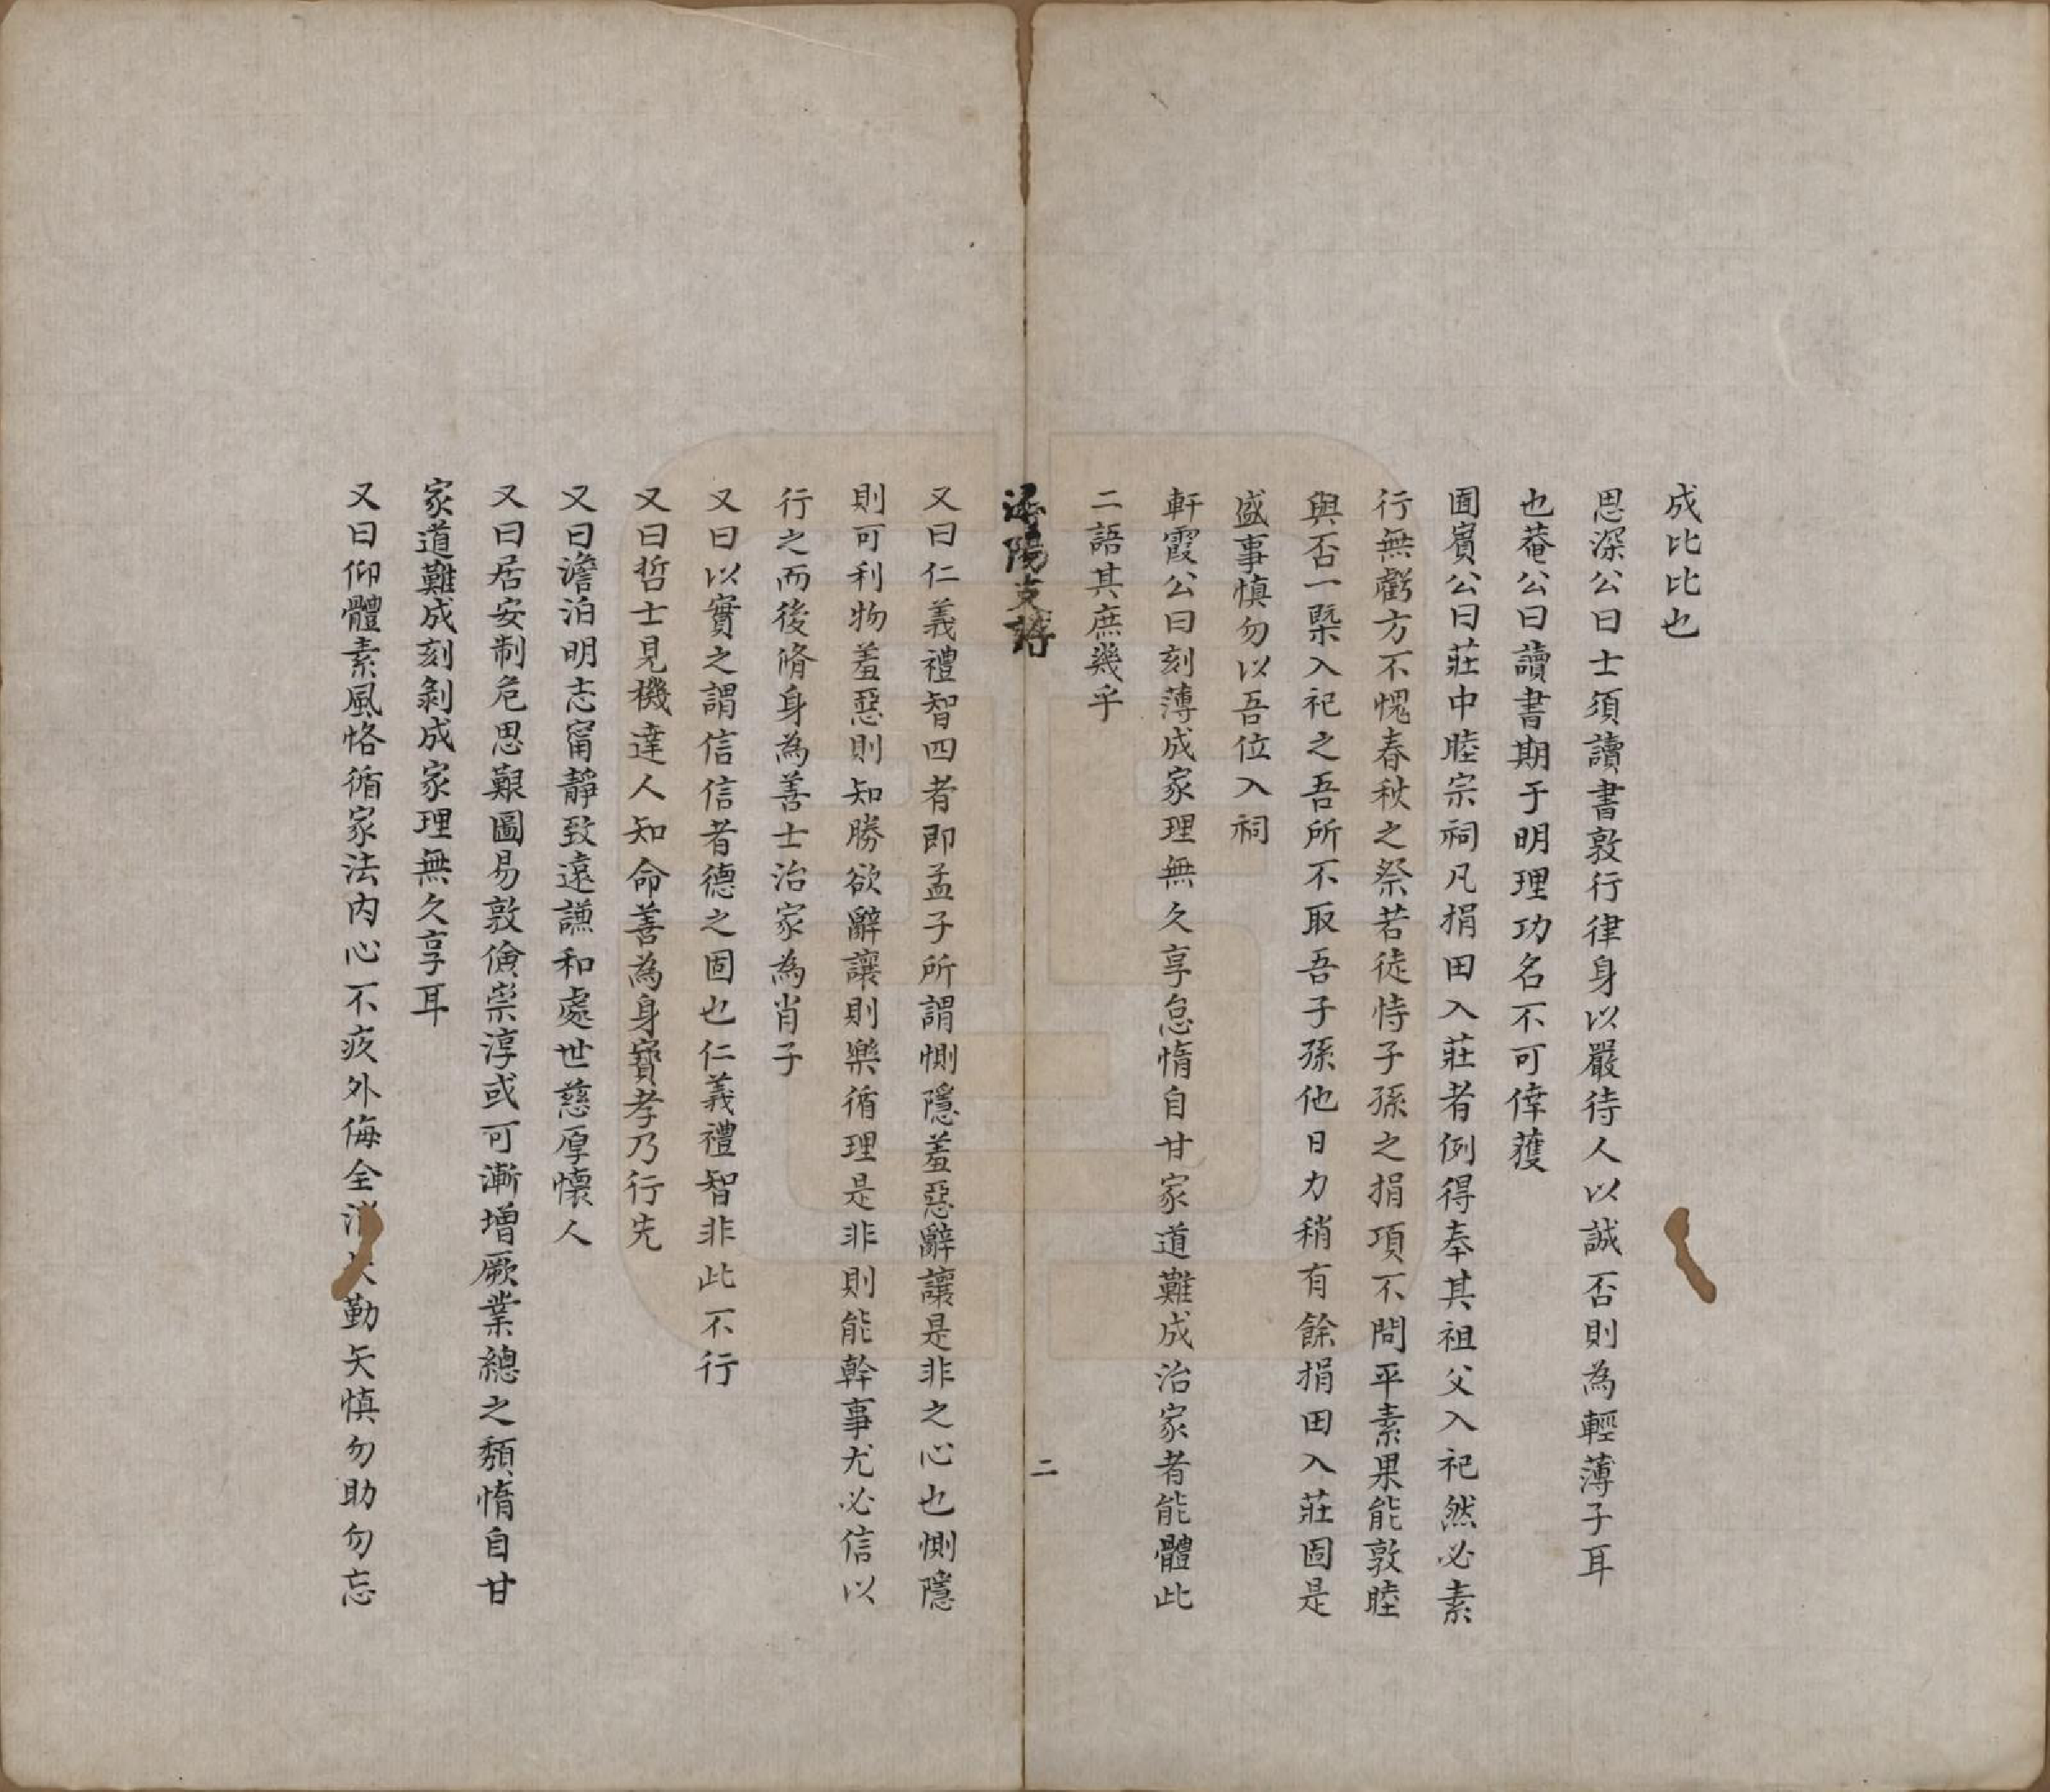 成比比也
思深公曰士須讀書敦行律身以嚴待人以誠否則為輕薄子耳
也菴公曰讀書期于明理功名不可倖獲
囿賓公曰莊中睦宗祠凡捐田入莊者例得奉其祖父入祀然必素
行無虧方不愧春秋之祭若徒恃子孫之捐項不問平素果能敦睦
與否一槩入祀之吾所不取吾子孫他日力稍有餘捐田入莊固是
盛事慎勿以吾位入祠
軒霞公曰刻薄成家理無久享怠惰自甘家道難成治家者能體此
二語其庶幾乎
陽支譜
二
又曰仁義禮智四者即孟子所謂惻隱羞惡辭讓是非之心也惻隱
則可利物羞惡則知勝欲辭讓則樂循理是非則能幹事尤必信以
行之而後脩身為善士治家為肖子
又曰以實之謂信信者德之固也仁義禮智非此不行
又曰哲士見機達人知命善為身寶孝乃行先
又曰澹泊明志甯靜致遠謙和處世慈厚懷人
又曰居安制危思艱圖易敦儉崇淳或可漸增厥業總之頹惰自甘
家道難成刻剝成家理無久享耳
又曰仰體素風恪循家法內心不疚外侮全勤矢慎勿助勿忘